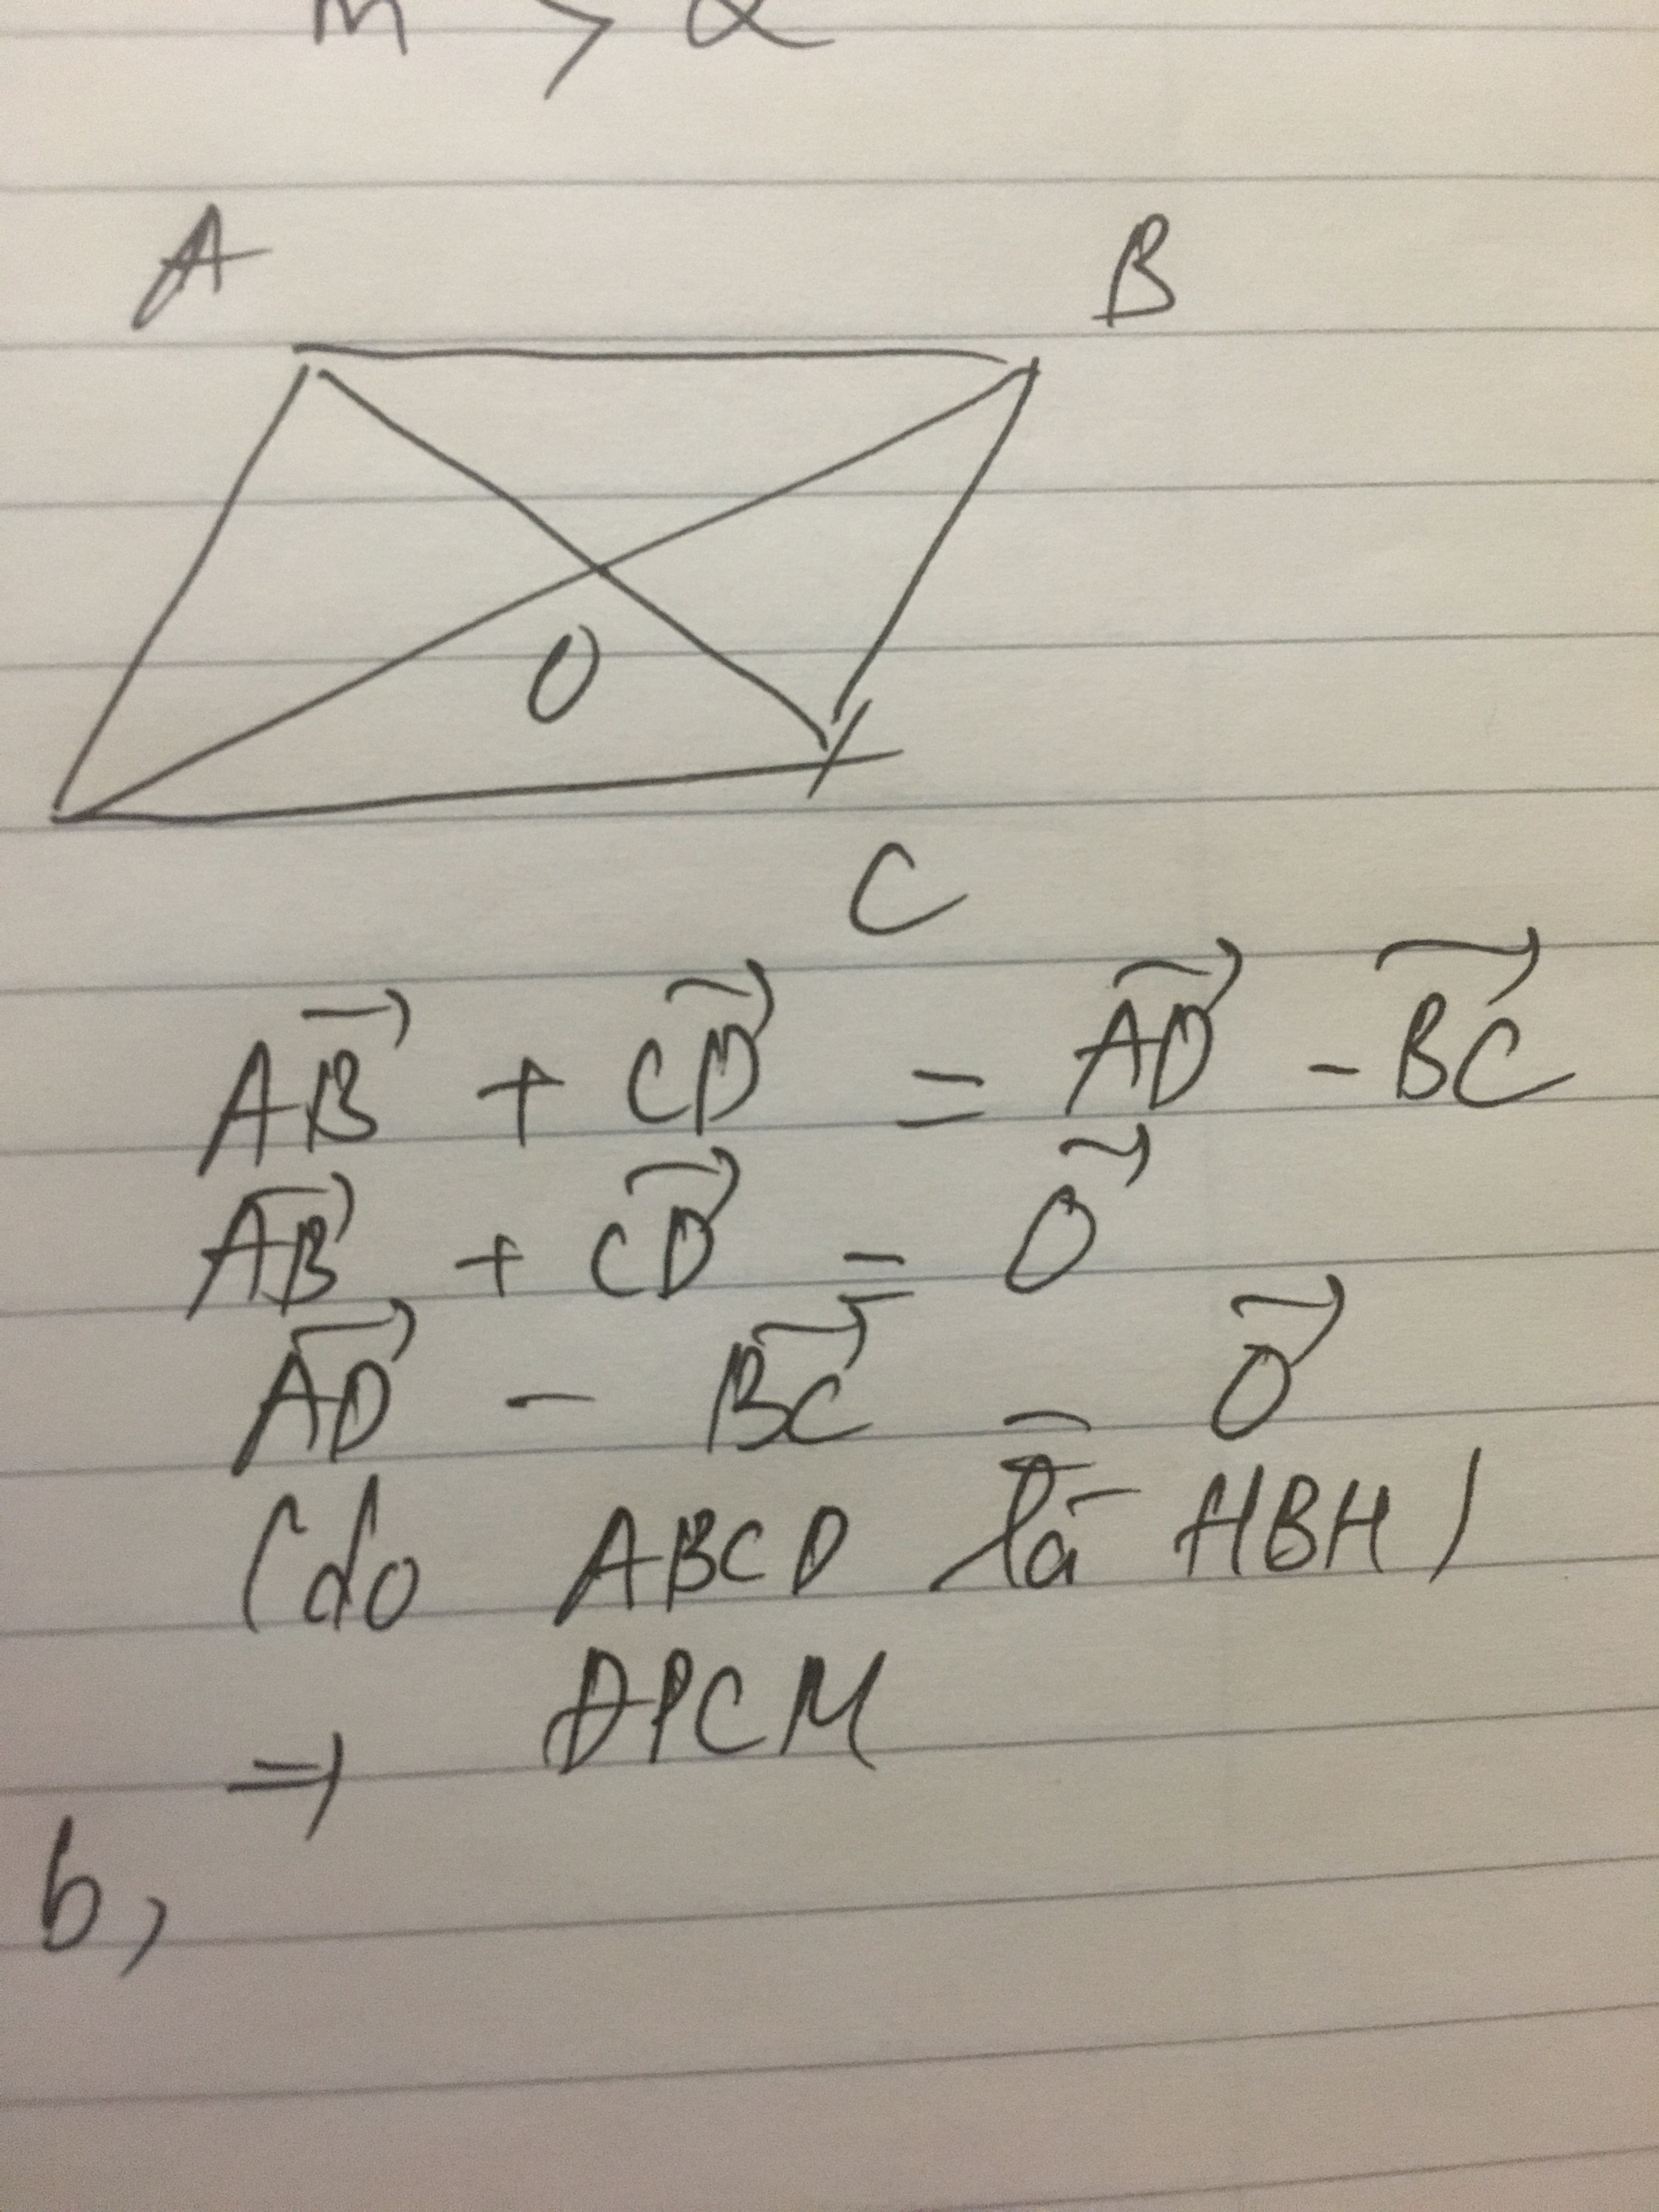 m > 2
A
B
O
C
AB⃗ + CD⃗ = AD⃗ - BC⃗
AB⃗ + CD⃗ = 0⃗
AD⃗ - BC⃗ = 0⃗
(do ABCD là HBH)
=> ĐPCM
b,